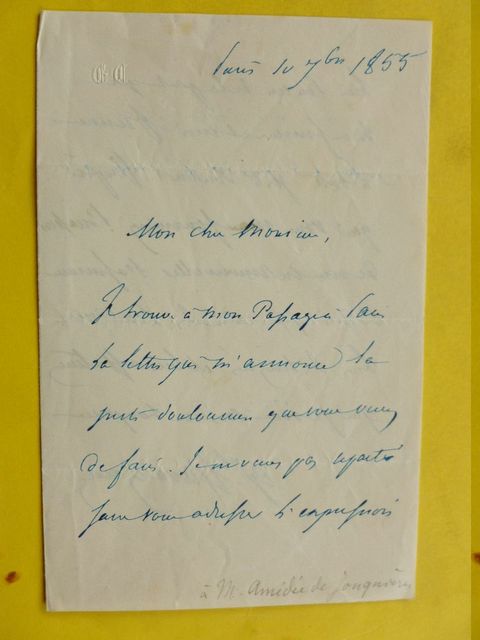 Paris 10 7bre 1855
Mon cher Monsieur,
Je trouve à mon Passage à Paris
la lettre qui m'annonce la
perte douloureuse que vous venez
de faire. Je ne veux pas
sans vous adresser l'expression
à M. Amédée de Jonquières